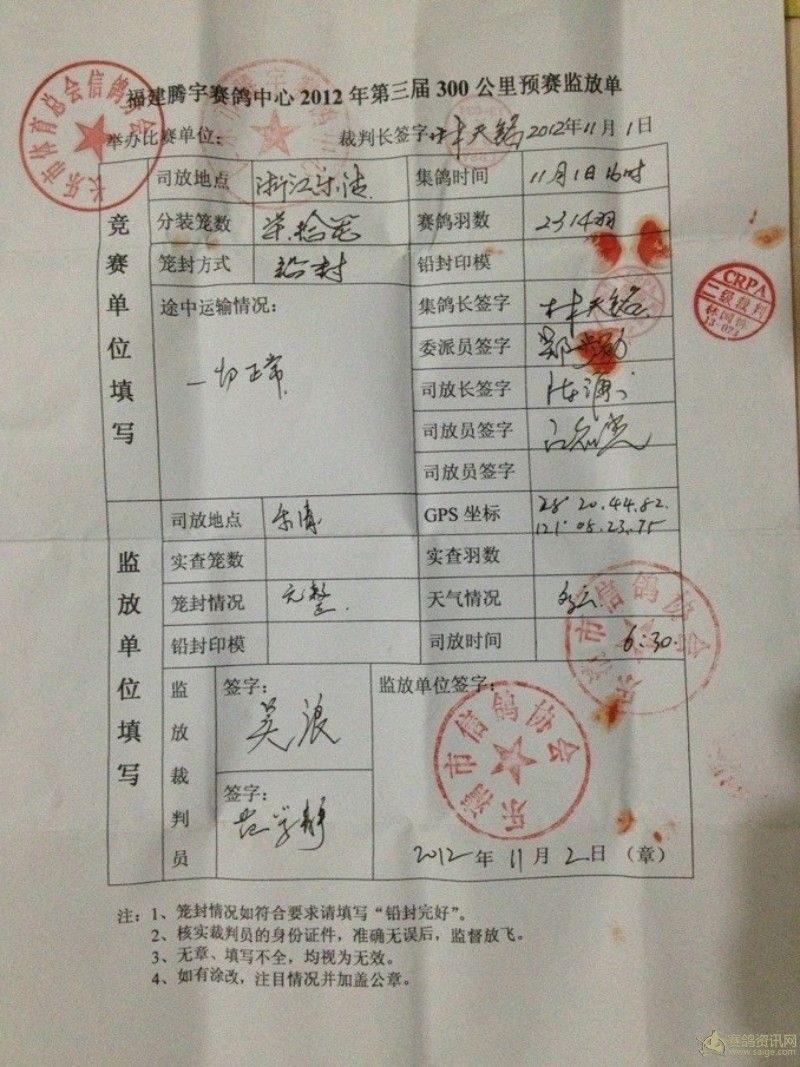 福建腾宇赛鸽中心2012年第三届300公里预赛监放单
举办比赛单位： 裁判长签字：林天铭 2012年11月1日
竞赛单位填写
司放地点 浙江乐清 集鸽时间 11月1日16时
分装笼数 赛鸽羽数 2314羽
笼封方式 铅封 铅封印模
途中运输情况： 集鸽长签字 林天铭
一切正常 委派员签字
司放长签字
司放员签字
司放员签字
监放单位填写
司放地点 乐清 GPS坐标 28°20.44.82.
121°08.23.75
实查笼数 实查羽数
笼封情况 完整. 天气情况 多云
铅封印模 司放时间 6:30.
监放裁判员
签字： 监放单位签字：
吴浪
签字：
2012年11月2日（章）
注：1、笼封情况如符合要求请填写“铅封完好”。
2、核实裁判员的身份证件，准确无误后，监督放飞。
3、无章、填写不全，均视为无效。
4、如有涂改，注目情况并加盖公章。
长乐市体育总会信鸽协会
CRPA
二级裁判
乐清市信鸽协会
乐清市信鸽协会
赛鸽资讯网
www.saige.com